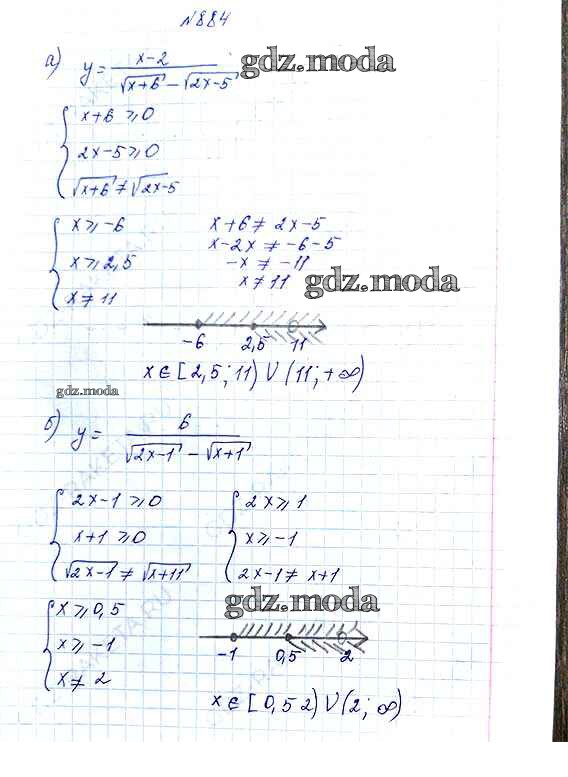 №884
а) y = x-2 / √x+6 - √2x-5
gdz.moda
{ x+6 ≥ 0
2x-5 ≥ 0
√x+6 ≠ √2x-5
{ x ≥ -6
x ≥ 2,5
x ≠ 11
x+6 ≠ 2x-5
x-2x ≠ -6-5
-x ≠ -11
x ≠ 11
gdz.moda
-6 2,5 11
x ∈ [2,5; 11) U (11; +∞)
gdz.moda
б) y = 6 / √2x-1 - √x+1
{ 2x-1 ≥ 0
x+1 ≥ 0
√2x-1 ≠ √x+11
{ 2x ≥ 1
x ≥ -1
2x-1 ≠ x+1
gdz.moda
{ x ≥ 0,5
x ≥ -1
x ≠ 2
-1 0,5 2
x ∈ [0,5 2) U (2; ∞)